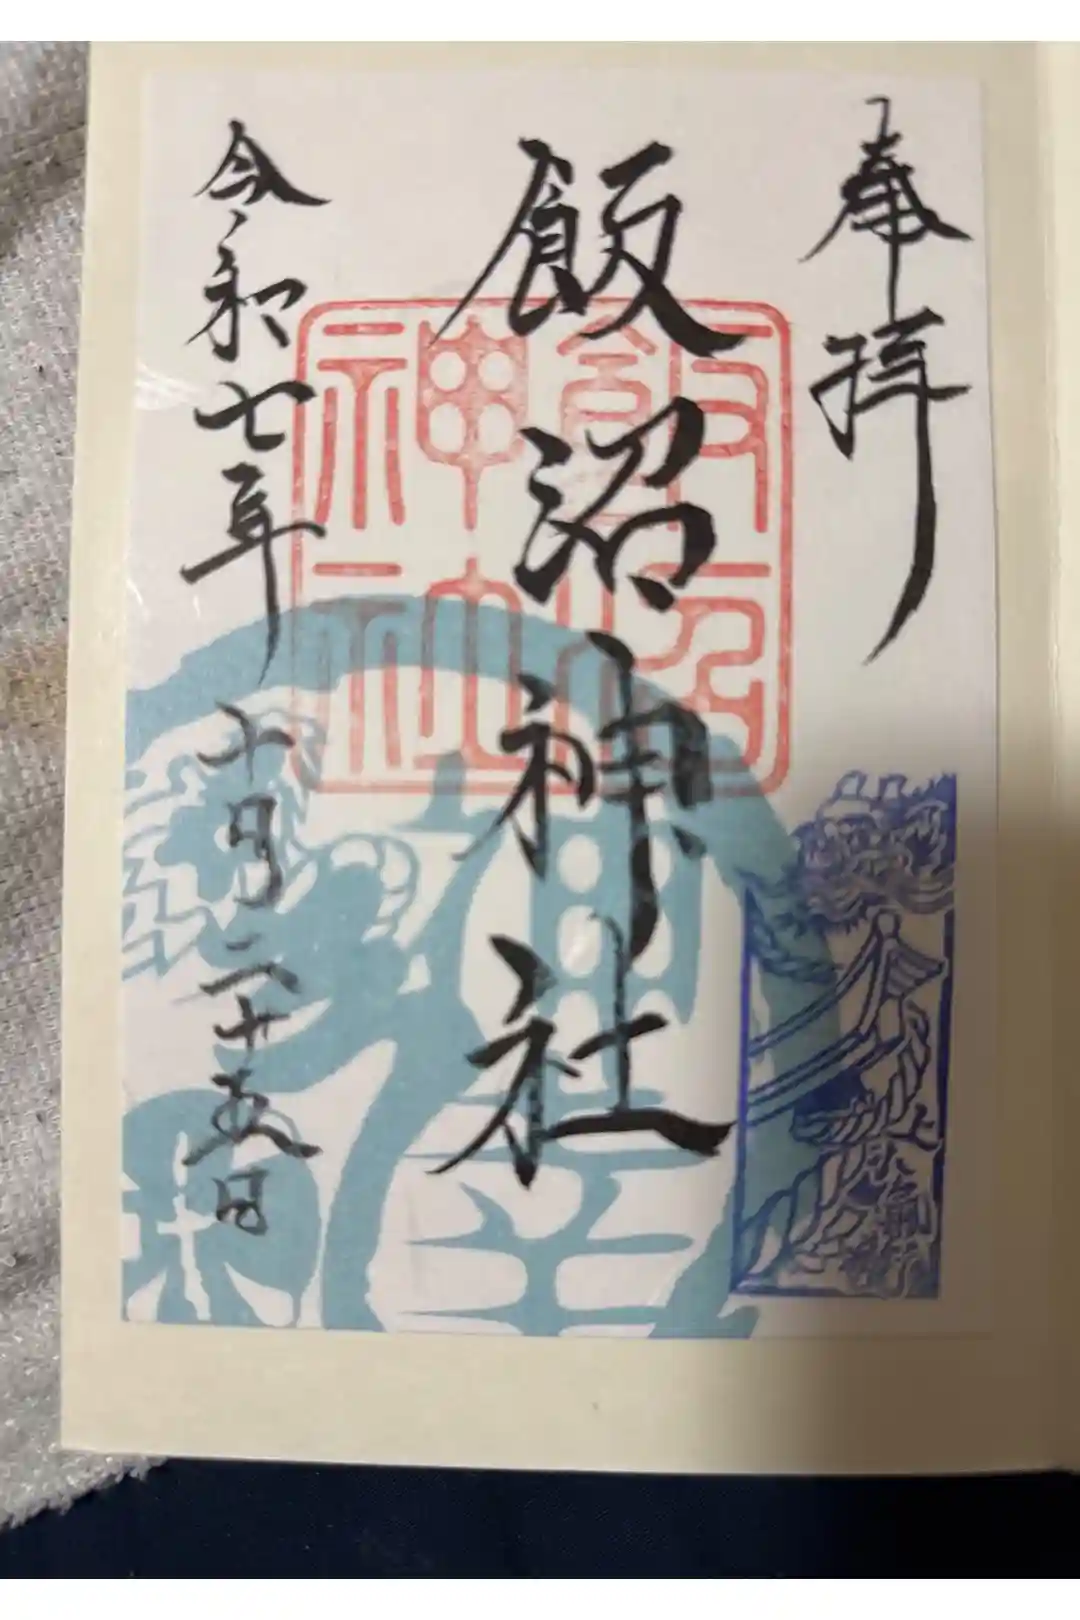 奉拝
飯沼神社
飯沼神社
令和七年十月二十五日